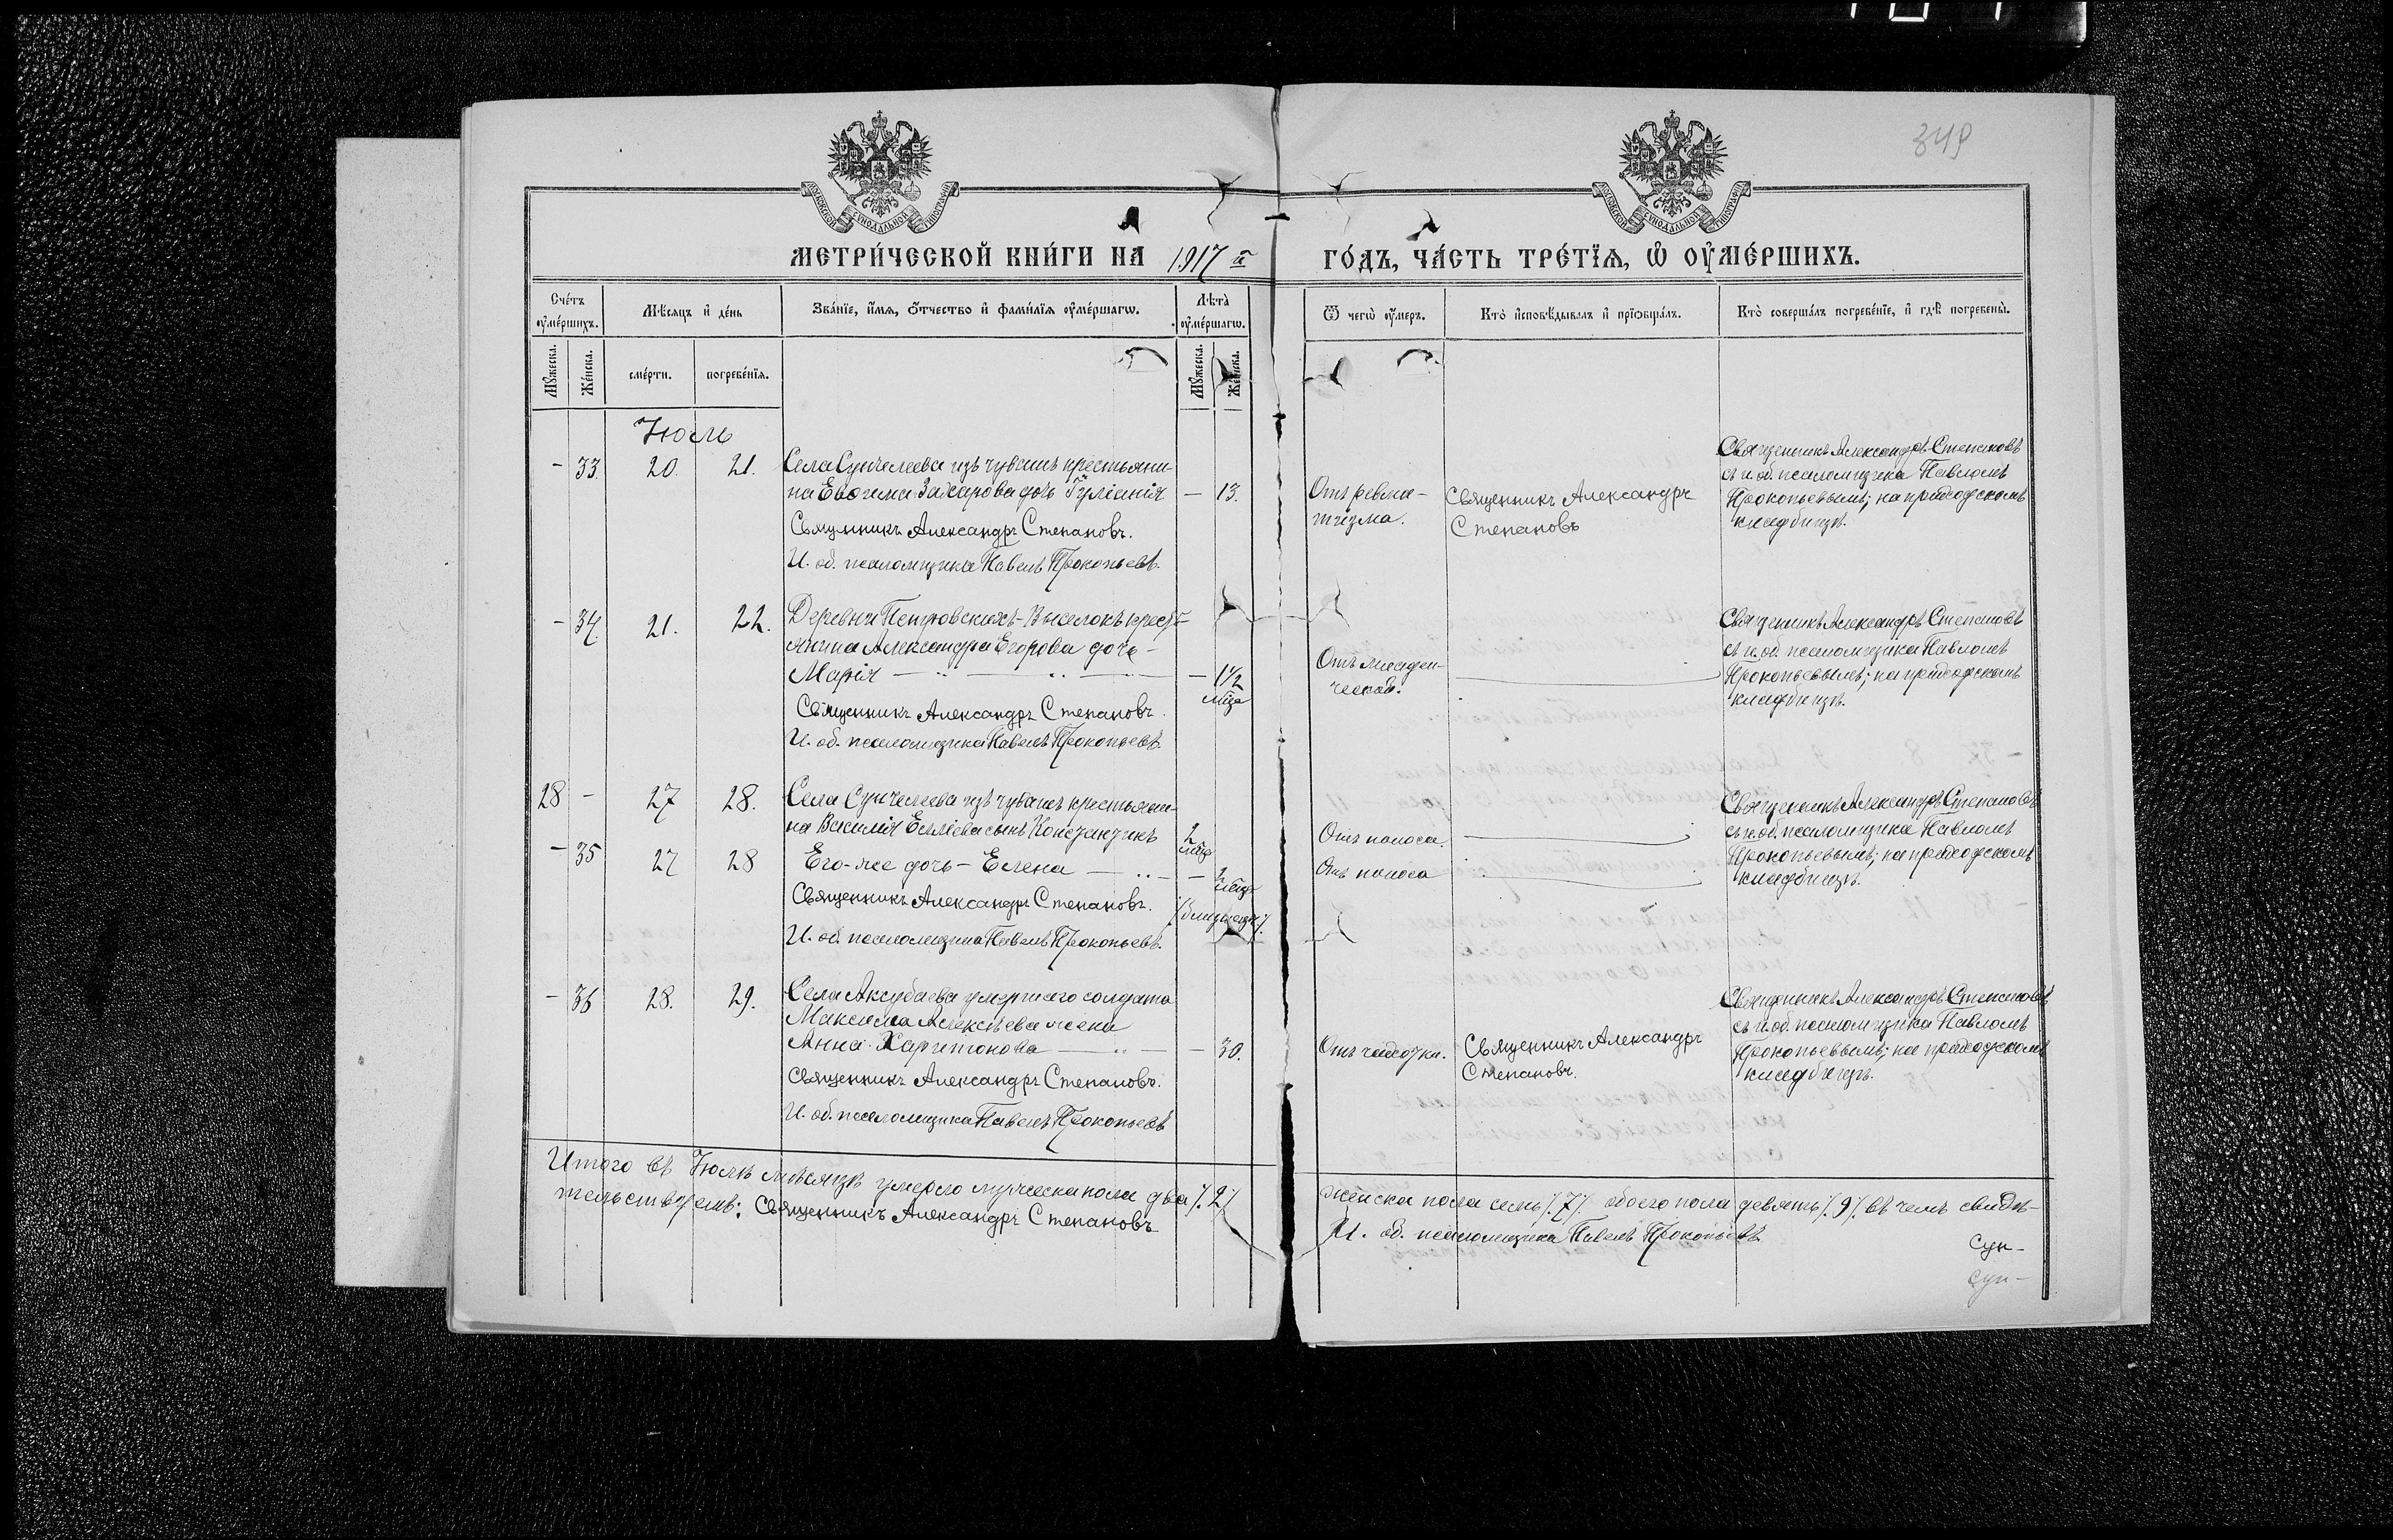 349
МЕТРИ́ЧЕСКОЙ КНИ́ГИ НА 1917 й ГО́ДЪ, ЧА́СТЬ ТРЕ́ТЇѦ, Ѡ҆ ОУ҆МЕ́РШИХЪ.
Сче́тъ оу҆ме́ршихъ.
Мѣ́сяцъ и҆ де́нь
Зва́нїе, и҆́мя, ѻ҆́тчество и҆ фами́лїя оу҆ме́ршагѡ.
Лѣ́та оу҆ме́ршагѡ.
Ѿ чегѡ̀ оу҆́меръ.
Кто̀ и҆сповѣ́дывалъ и҆ прїѡбща́лъ.
Кто̀ соверша́лъ погребе́нїе, и҆ гдѣ̀ погребены̀.
Мꙋ́жеска.
Же́нска.
сме́рти.
погребе́нїя.
Мꙋ́жеска.
Же́нска.
Іюль
- 33. 20. 21. Села Сунчелеева изъ чувашъ крестьяни-
на Евѳима Захарова дочь Іуліанія — 13.
Священникъ Александръ Степановъ.
И. об. псаломщика Павелъ Прокопьевъ.
Отъ ревма-
тизма.
Священникъ Александръ
Степановъ
Священникъ Александръ Степановъ
съ и. об. псаломщика Павломъ
Прокопьевымъ; на приходскомъ
кладбищѣ.
- 34. 21. 22. Деревни Петровскихъ-Выселокъ крестъ-
янина Александра Егорова дочь -
Марія — 1 1/2
мѣс
Священникъ Александръ Степановъ.
И. об. псаломщика Павелъ Прокопьевъ.
Отъ младен-
ческой.
Священникъ Александръ Степановъ
съ и. об. псаломщика Павломъ
Прокопьевымъ; на приходскомъ
кладбищѣ.
28 - 27 28. Села Сунчелеева изъ чувашъ крестьяни-
на Василія сынъ Константинъ 2
мѣс
- 35 27 28 Его-же дочь - Елена — 2
мѣс
Священникъ Александръ Степановъ. /близнецы/.
И. об. псаломщика Павелъ Прокопьевъ.
Отъ поноса.
Отъ поноса
Священникъ Александръ Степановъ
съ и. об. псаломщика Павломъ
Прокопьевымъ; на приходскомъ
кладбищѣ.
- 36 28. 29. Села Аксубаева умершаго солдата
Максима Алексѣева жена
Анна Харитонова — 30.
Священникъ Александръ Степановъ.
И. об. псаломщика Павелъ Прокопьевъ
Отъ чахотки.
Священникъ Александръ
Степановъ.
Священникъ Александръ Степановъ
съ и. об. псаломщика Павломъ
Прокопьевымъ; на приходскомъ
кладбищѣ.
Итого въ Іюлѣ мѣсяцѣ умерло мужеска пола два /.2/ женска пола семь /.7/. обоего пола девять /.9/. въ чемъ свидѣ-
тельствуемъ: Священникъ Александръ Степановъ
И. об. псаломщика Павелъ Прокопьевъ
Сун-
Сун-